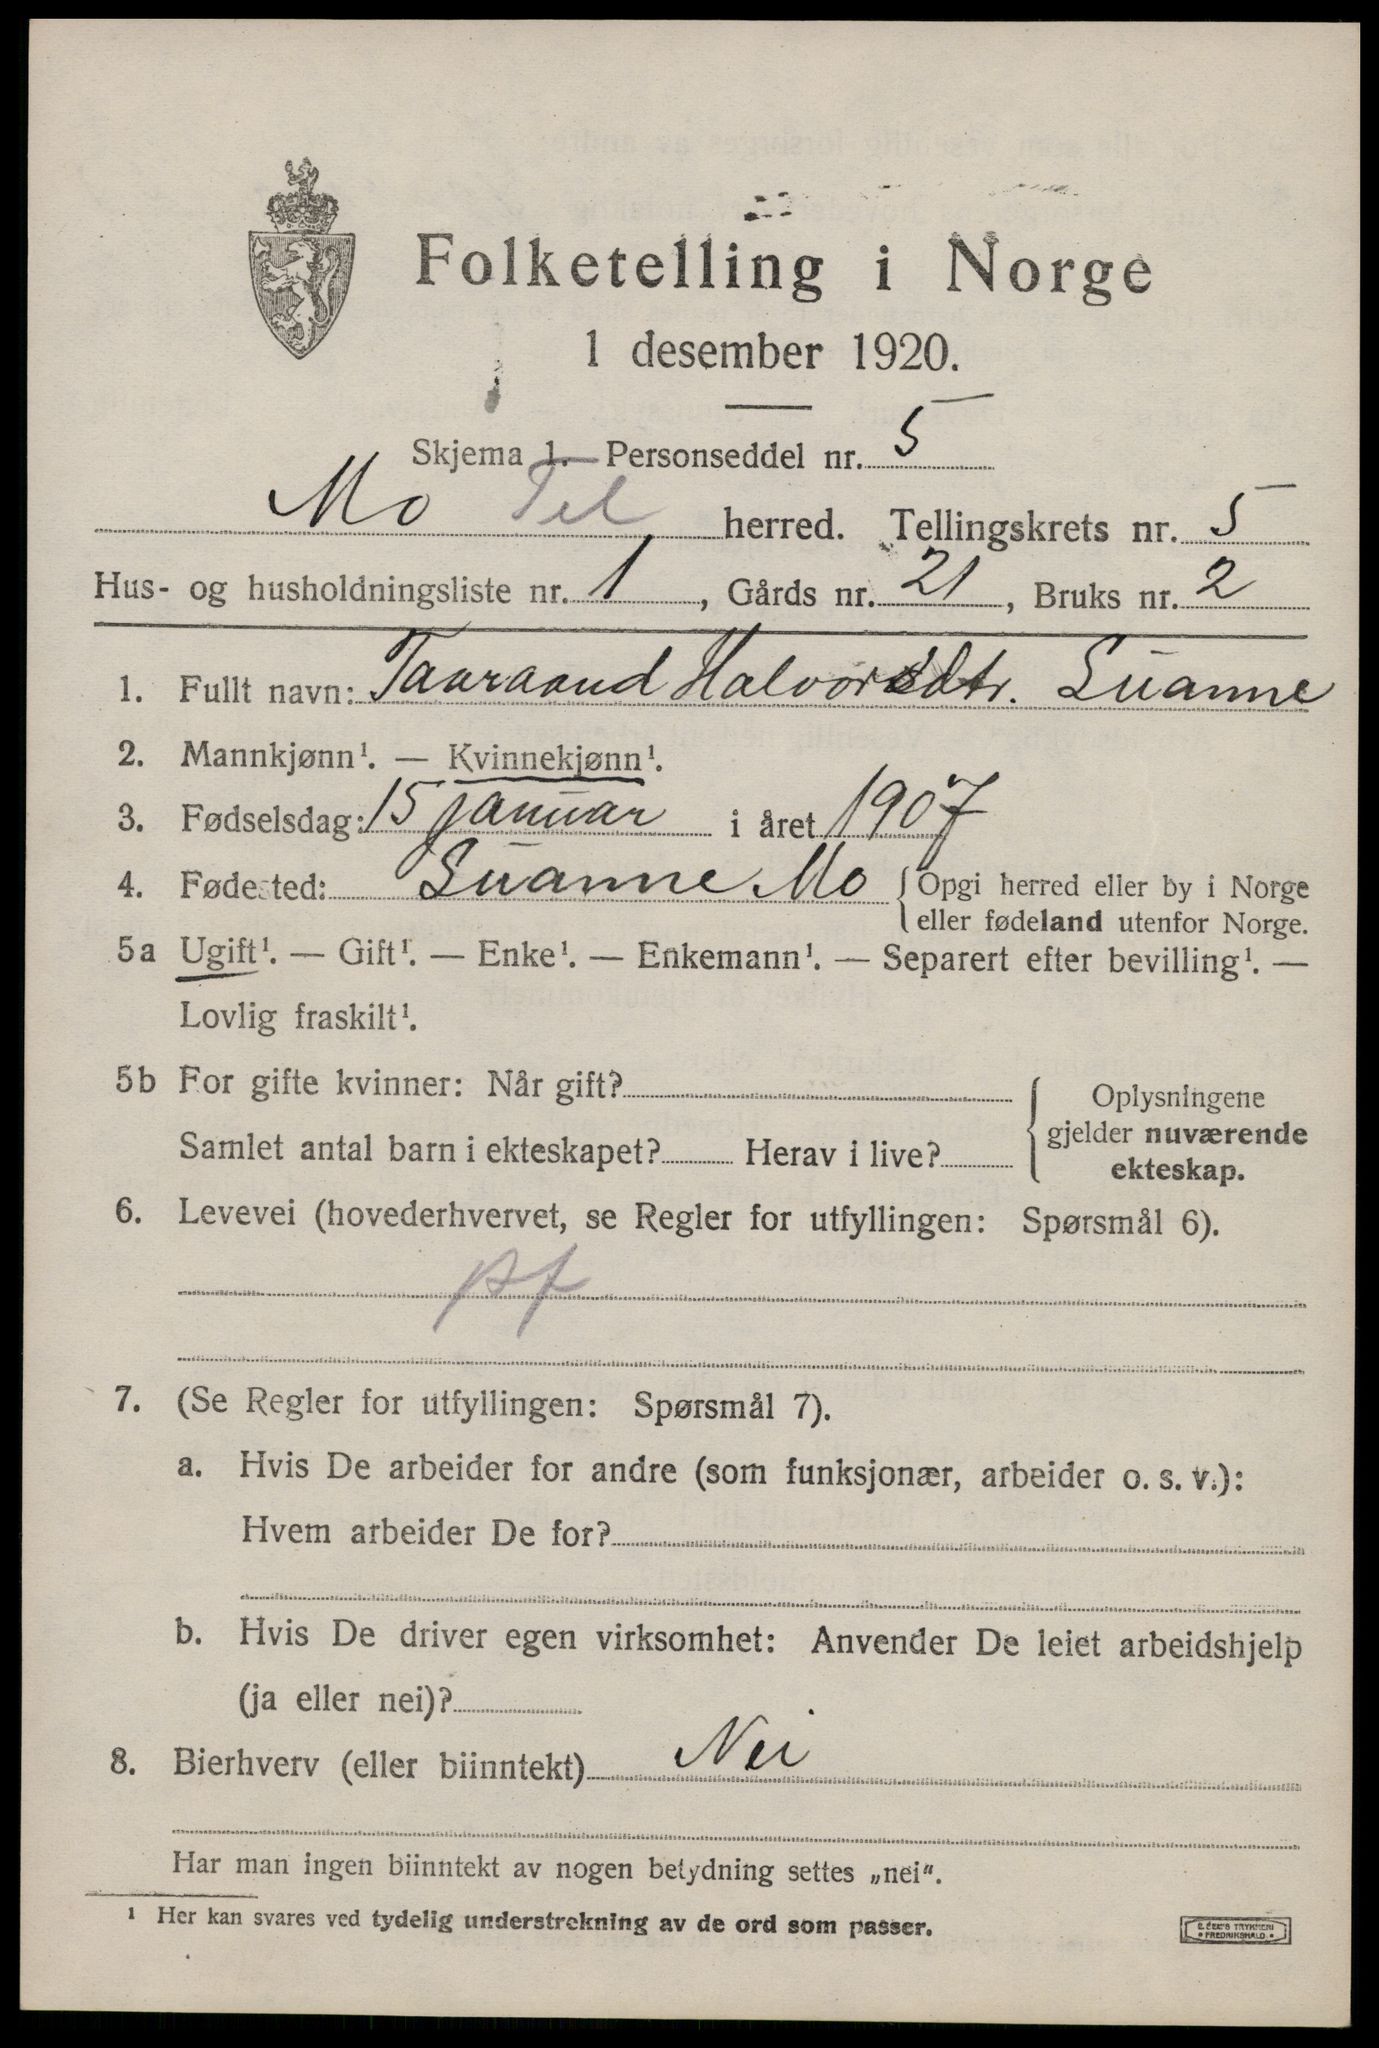 Folketelling i Norge
1 desember 1920.
Skjema 1. Personseddel nr. 5
Mo Tel herred. Tellingskrets nr. 5
Hus- og husholdningsliste nr. 1, Gårds nr. 21, Bruks nr. 2
1. Fullt navn: Taaraand Halvorsdtr. Suanne
2. Mannkjønn¹. — Kvinnekjønn¹.
3. Fødselsdag: 15 januar i året 1907
4. Fødested: Suanne Mo {Opgi herred eller by i Norge
eller fødeland utenfor Norge.
5a Ugift¹. — Gift¹. — Enke¹. — Enkemann¹. — Separert efter bevilling¹. —
Lovlig fraskilt¹.
5b For gifte kvinner: Når gift?
Samlet antal barn i ekteskapet? Herav i live?
Oplysningene
gjelder nuværende
ekteskap.
6. Levevei (hovederhvervet, se Regler for utfyllingen: Spørsmål 6).
7. (Se Regler for utfyllingen: Spørsmål 7).
a. Hvis De arbeider for andre (som funksjonær, arbeider o. s. v.):
Hvem arbeider De for?
b. Hvis De driver egen virksomhet: Anvender De leiet arbeidshjelp
(ja eller nei)?
8. Bierhverv (eller biinntekt) Nei
Har man ingen biinntekt av nogen betydning settes „nei".
¹ Her kan svares ved tydelig understrekning av de ord som passer.